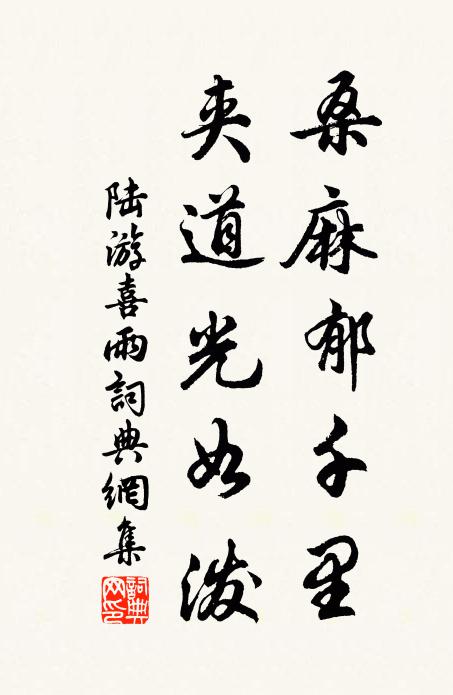 桑麻郁千里
夹道光如泼
陆游喜雨詞典網集
詞典网印